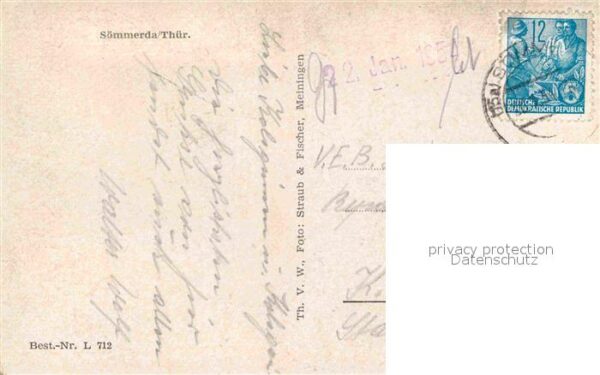 Sömmerda/Thür.
Liebe Kolleginnen u. Kollegen
die herzlichsten
Grüße von hier
sendet euch allen
Walter Wolf
Best.-Nr. L 712
Th. V. W., Foto: Straub & Fischer, Meiningen
2. Jan. 195
12
DEUTSCHE
DEMOKRATISCHE REPUBLIK
V.E.B.
K.
privacy protection
Datenschutz